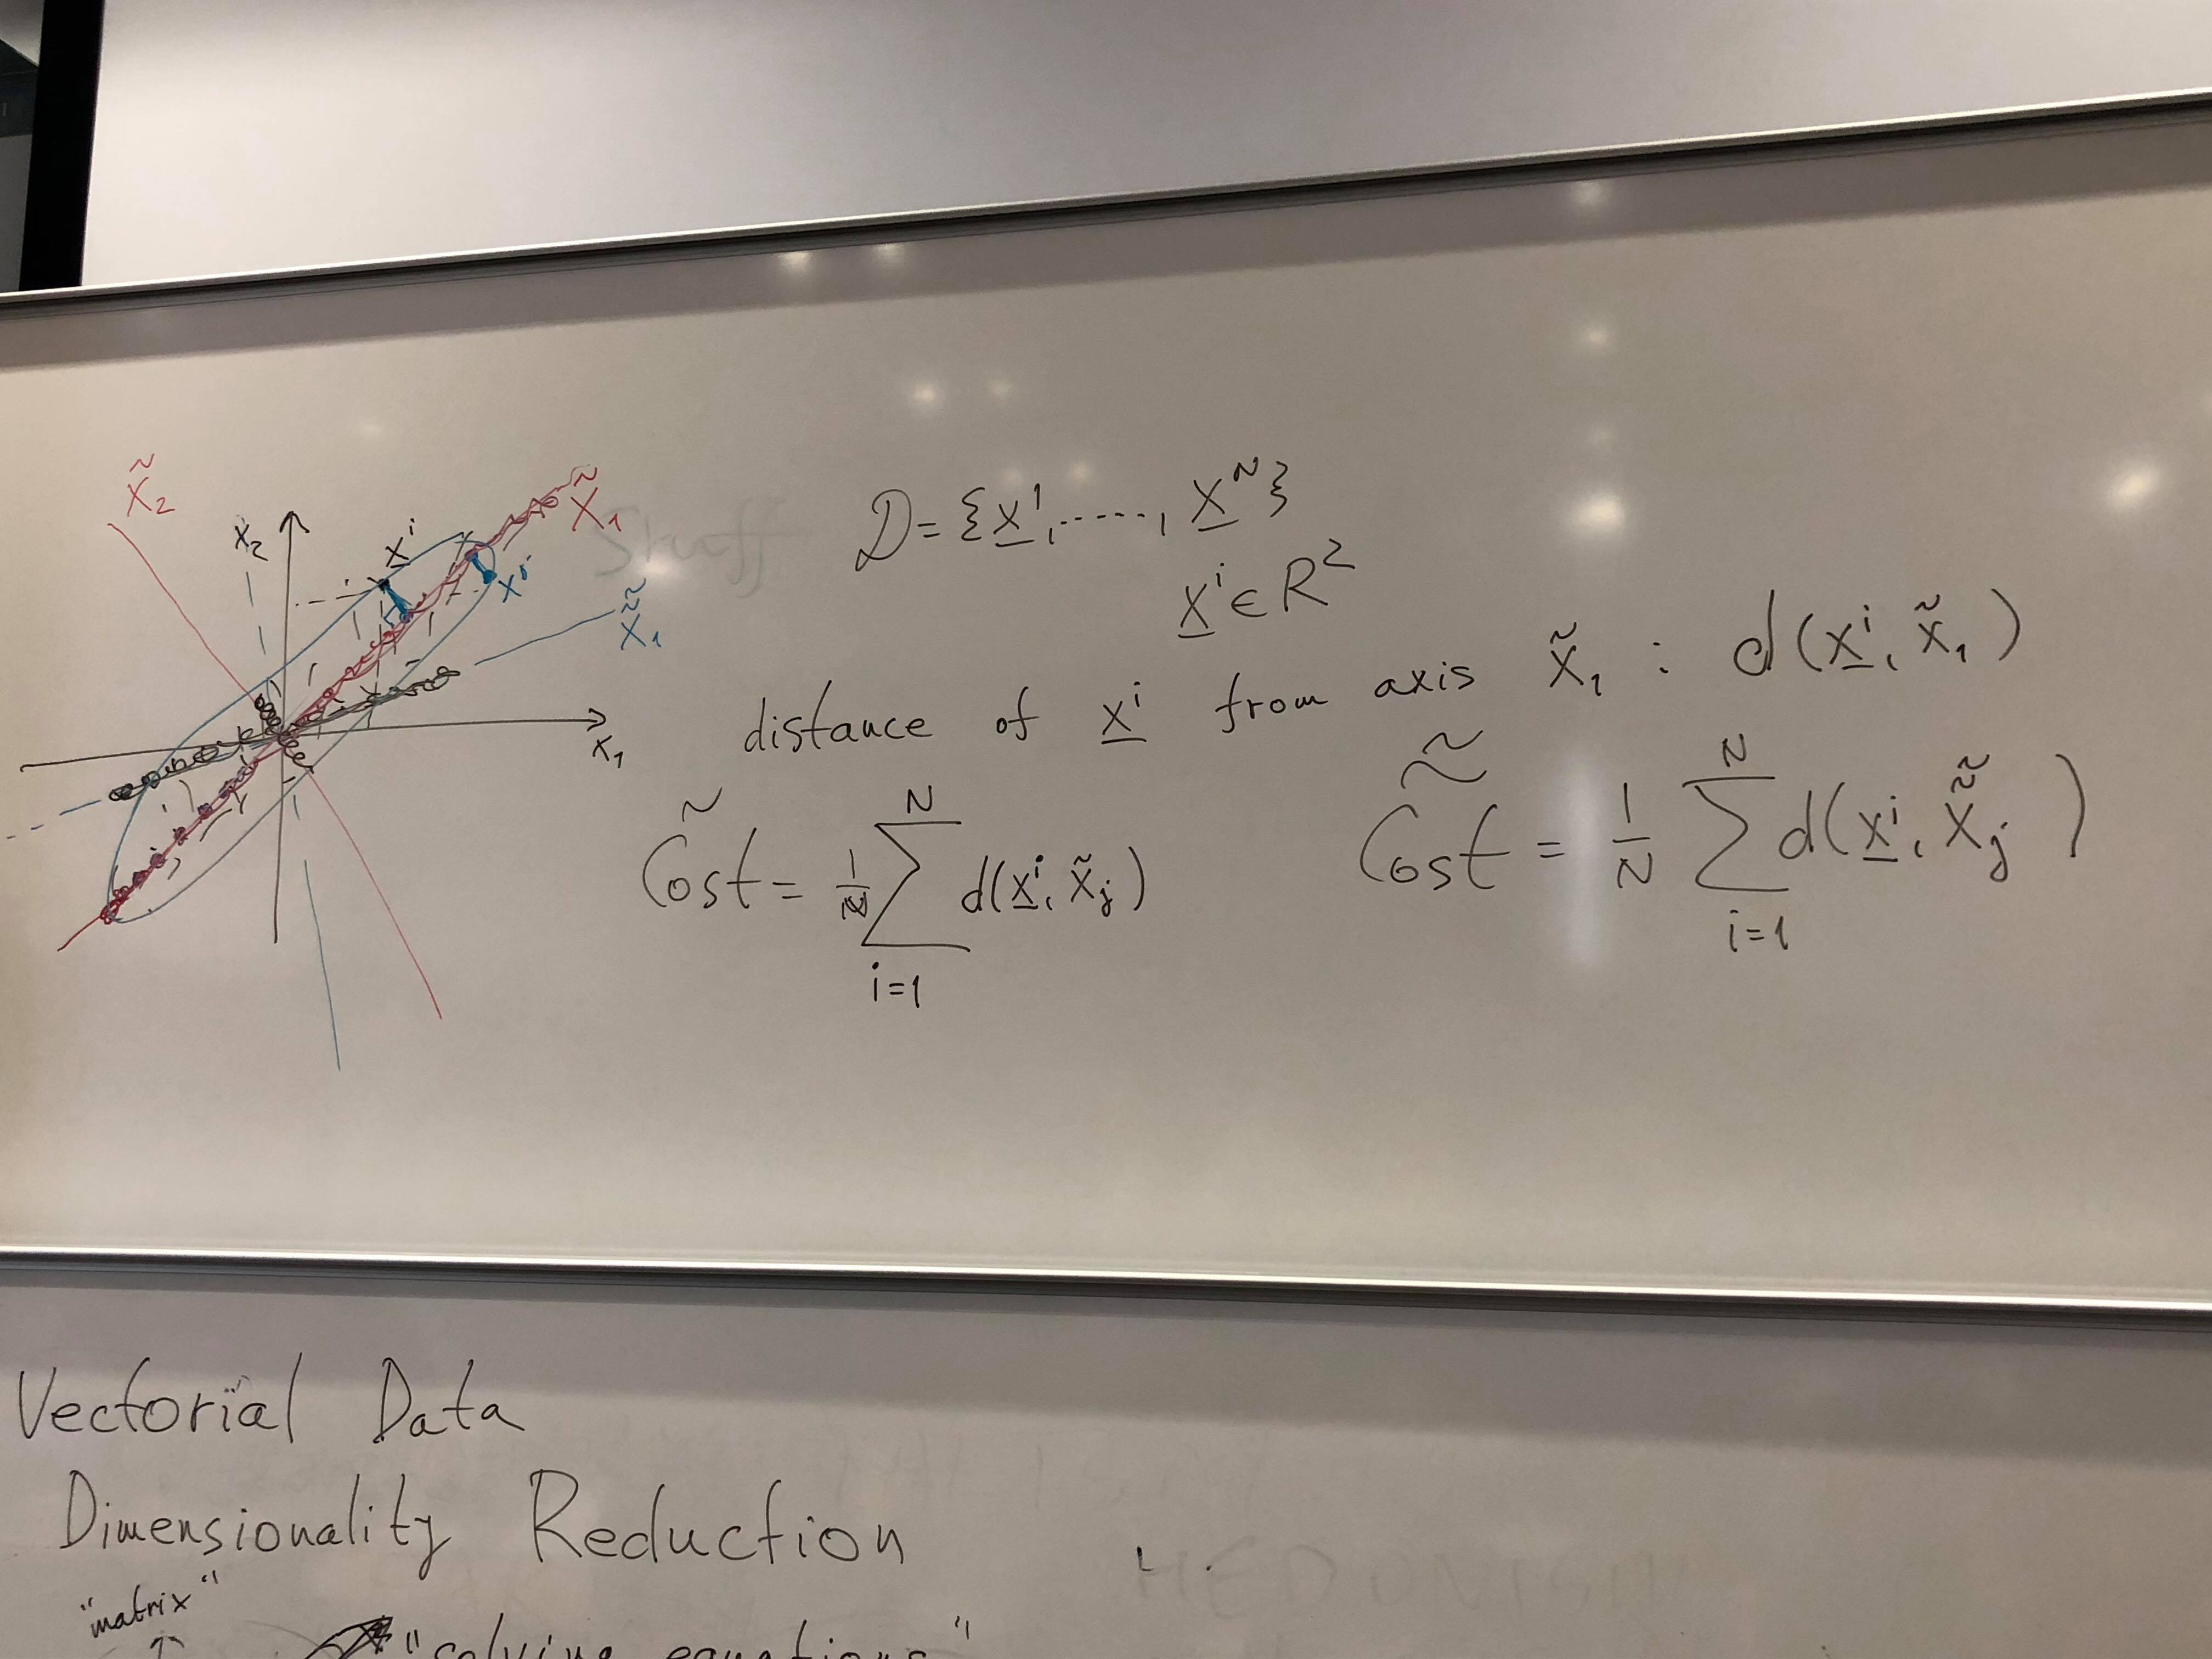 x̃₂
x₂
xⁱ
x̃₁
xʲ
x̃̃₁
x₁
D = {x¹, ......, xᴺ}
xⁱ ∈ R²
distance of xⁱ from axis x̃₁ : d(xⁱ, x̃₁)
C̃ost = 1/N ∑ᵢ₌₁ᴺ d(xⁱ, x̃ⱼ)
C̃̃ost = 1/N ∑ᵢ₌₁ᴺ d(xⁱ, x̃̃ⱼ)
Stuff
Vectorial Data
Dimensionality Reduction
HEDONISM
"matrix"
"solving equations"